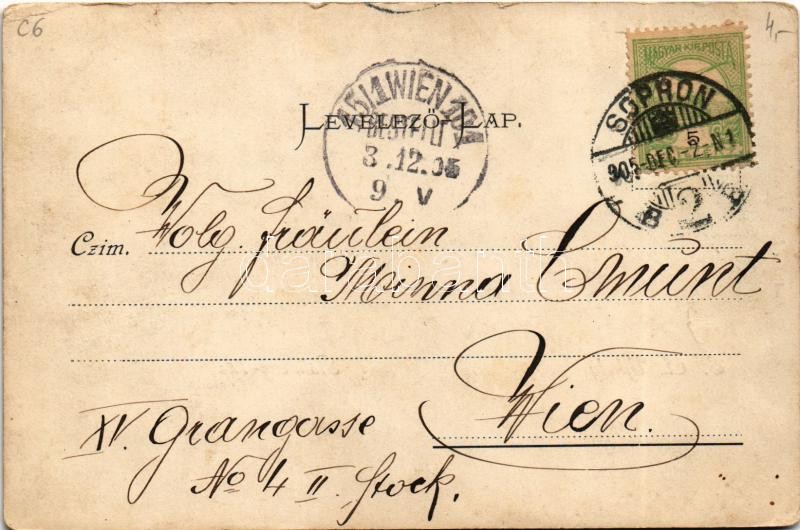 C6
4,-
MAGYAR KIR. POSTA
5
SOPRON
905-DEC.-2.N1
B 2 A
15/1 WIEN 101
BESTELLT
3.12.05
9 V
LEVELEZŐ-LAP.
Czim. Wolg. Fräulein
Minna Cmunt
Wien.
XV. Grangasse
No 4 II. Stock.
darabanth